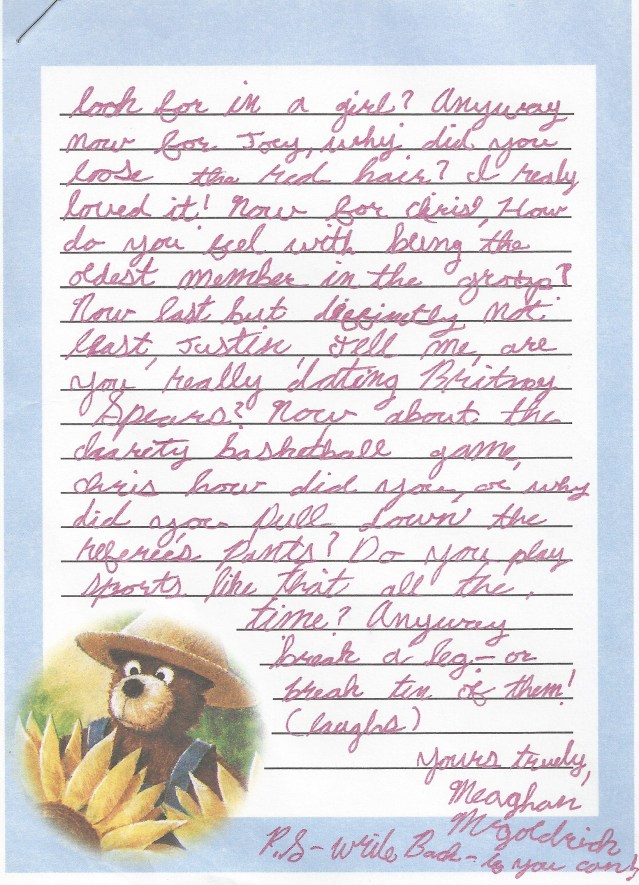 look for in a girl? Anyway
now for Joey, why did you
loose the red hair? I realy
loved it! Now for Chris, How
do you feel with being the
oldest member in the group?
Now last but diffintly not
least, Justin, tell me, are
you really dating Britney
Spears? Now about the
charety basketball game,
Chris how did you, or why
did you pull down the
referee's pants? Do you play
sports like that all the
time? Anyway
break a leg - or
break ten of them!
(laughs)
yours truely,
Meaghan
McGoldrich
P.S - Write Back - if you can!